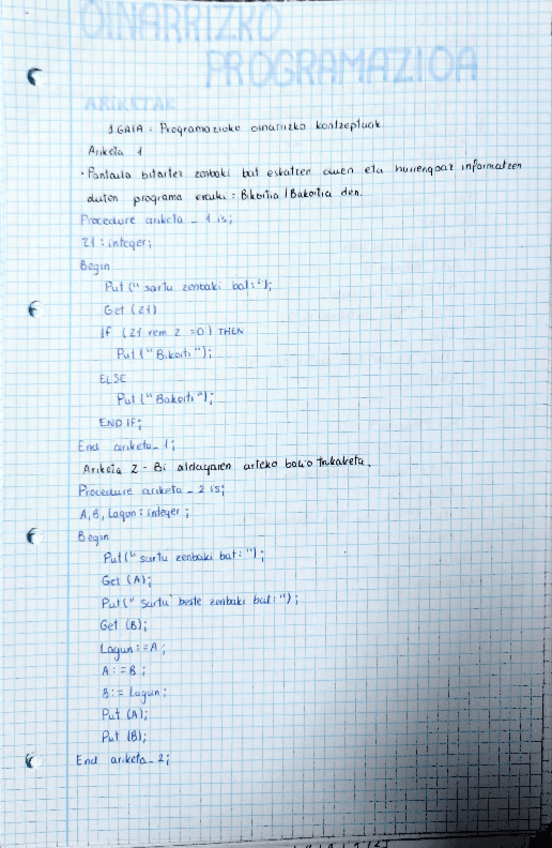 OINARRIZKO
PROGRAMAZIOA
ARIKETAK
1.GAIA: Programazioko oinarrizko kontzeptuak
Ariketa 1
• Pantaila bitartez zenbaki bat eskatzen duen eta hurrengoaz informatzen
duten programa eraiki: Bikoitia / Bakoitia den.
Procedure ariketa_1 is;
Z1: integer;
Begin
Put ("sartu zenbaki bat:");
Get (Z1)
If (Z1 rem 2 =0) THEN
Put ("Bikoiti");
ELSE
Put ("Bakoiti");
END IF;
End ariketa_1;
Ariketa 2 - Bi aldagaren arteko balio trukaketa.
Procedure ariketa_2 is;
A, B, Lagun: integer;
Begin
Put ("sartu zenbaki bat: ");
Get (A);
Put ("Sartu beste zenbaki bat: ");
Get (B);
Lagun:=A;
A:=B;
B:= Lagun;
Put (A);
Put (B);
End ariketa_2;